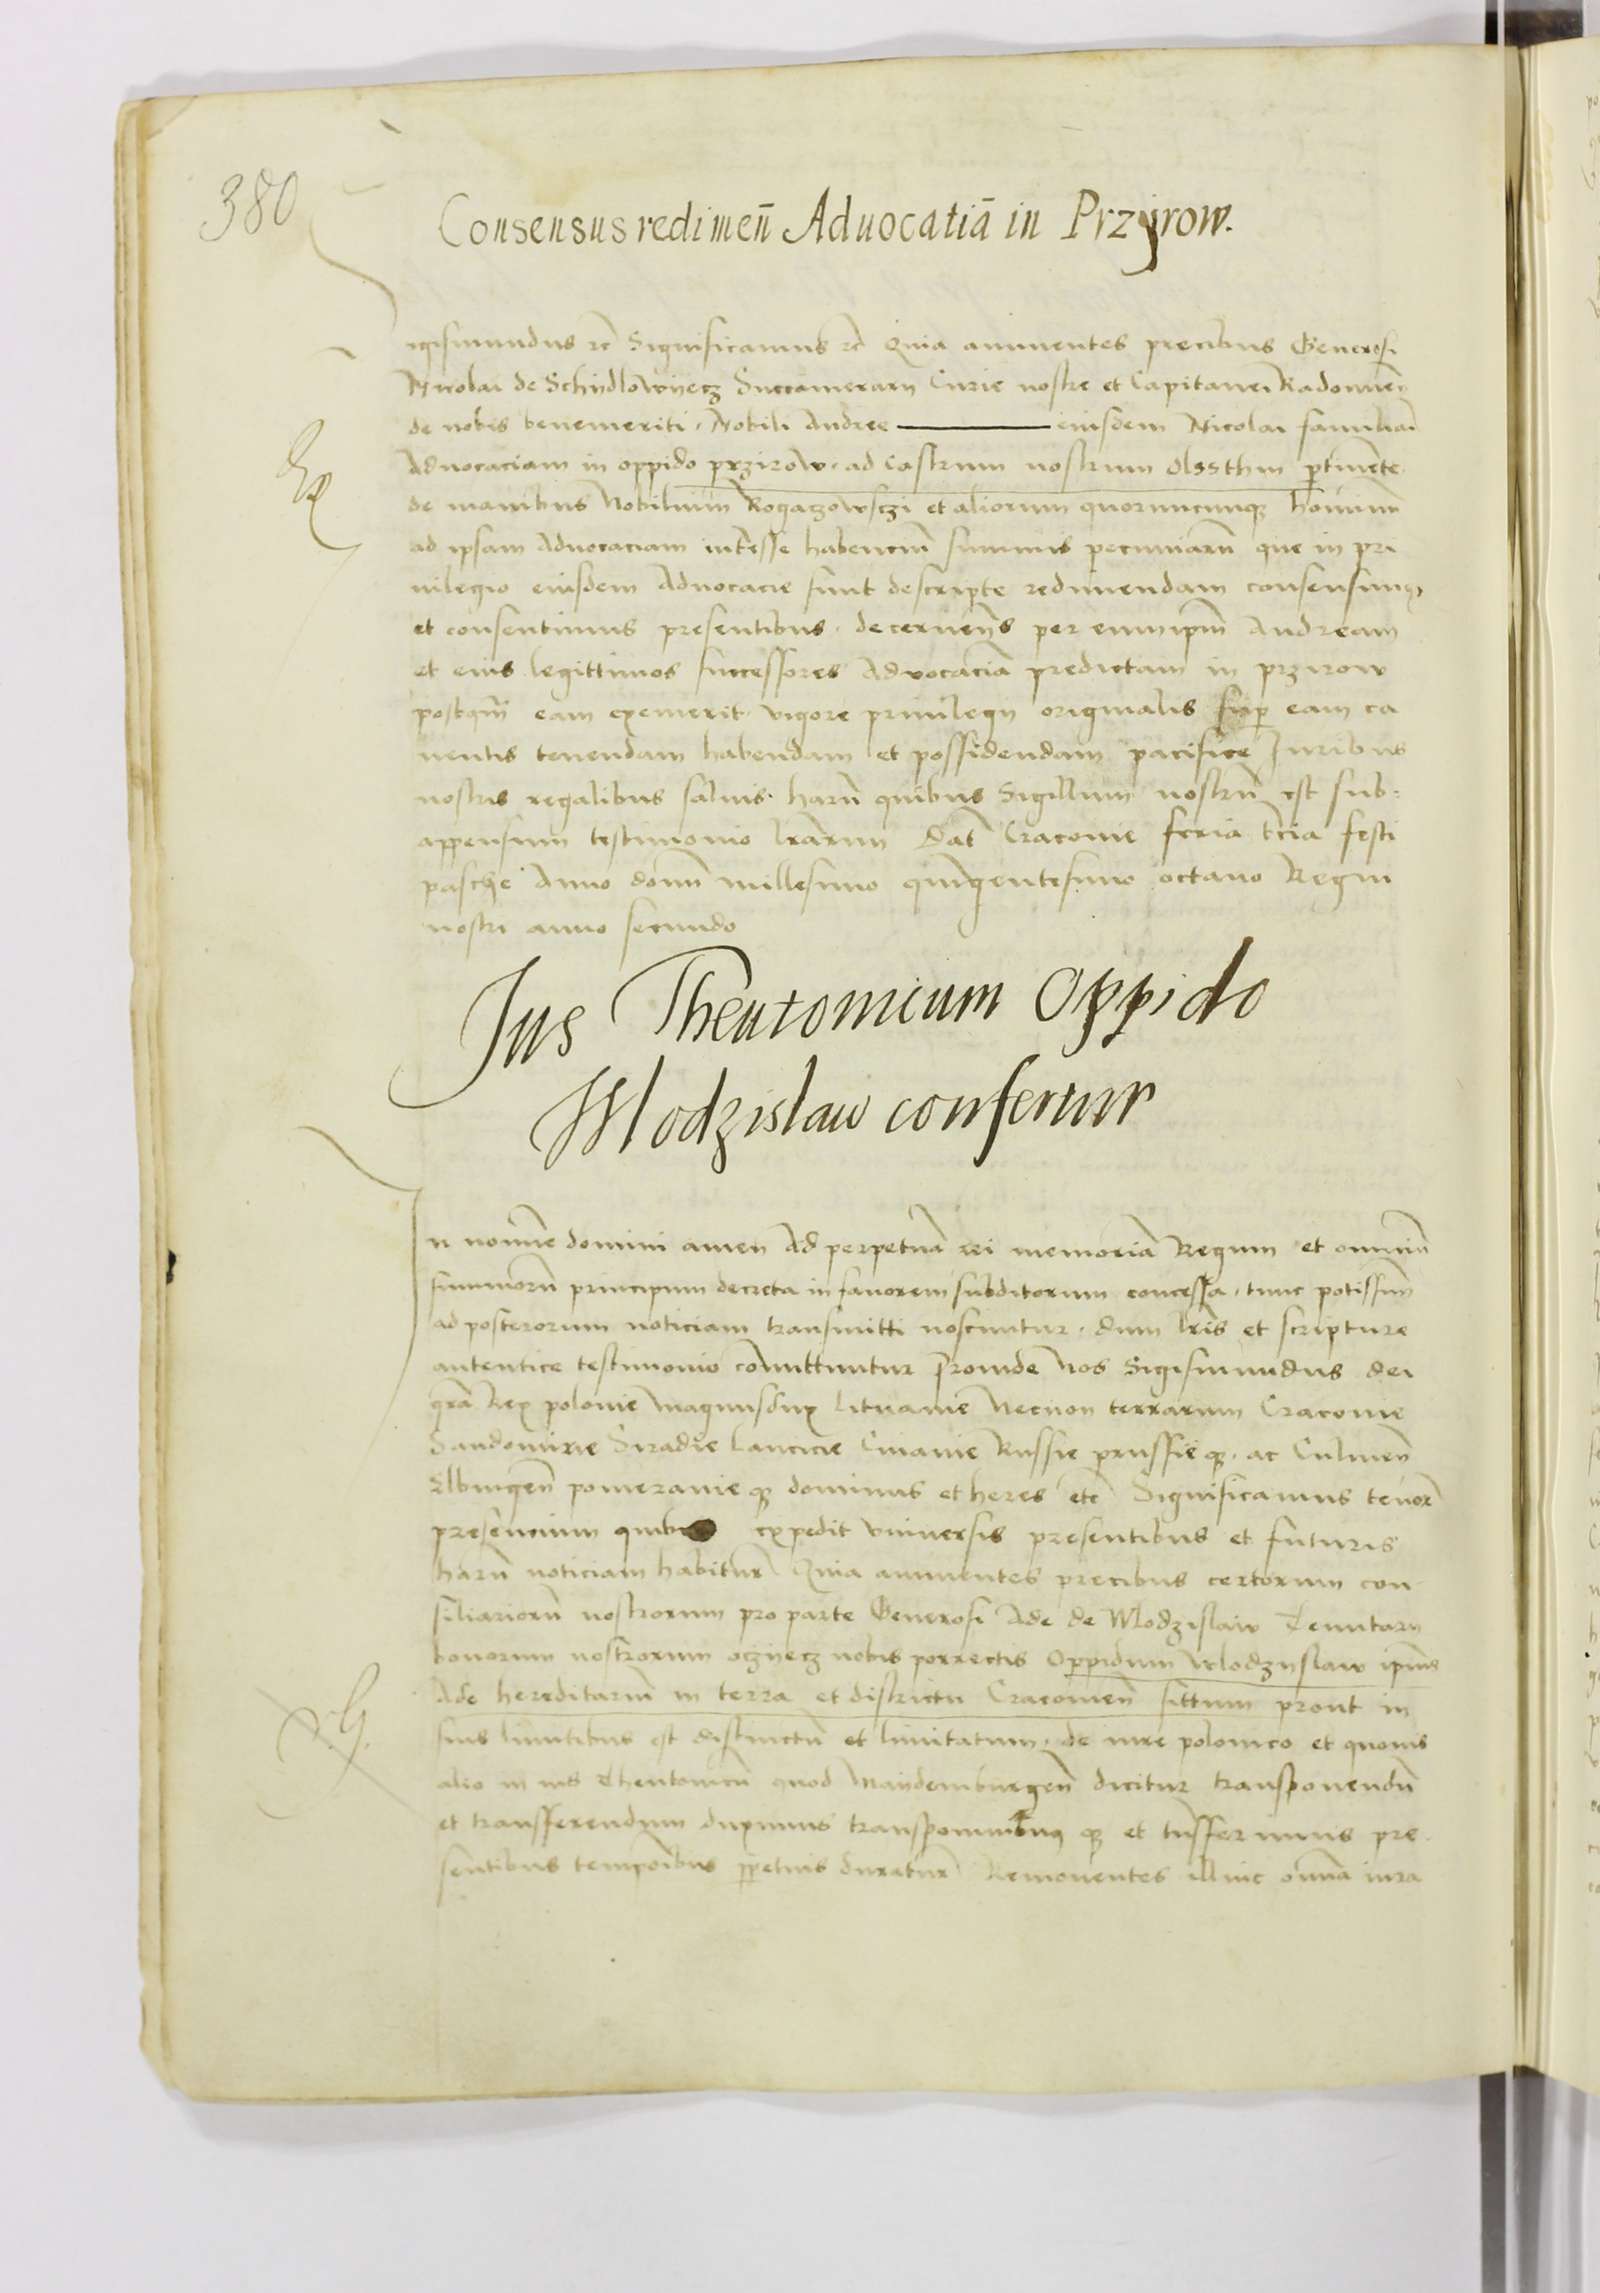 380
Consensus redimen̄ Aduocatiā in Przyrow.
igismundus ꝛc̄ Significamus ꝛc̄ Quia annuentes precibus Generosi
Nicolai de Schydlowyecz Succamerarij Curie nostre et Capitanei Radomien̄
de nobis benemeriti, Nobili Andree ——— eiusdem Nicolai familiari
Aduocaciam in oppido przirow, ad Castrum nostrum Olssthin ꝑtinēte
de manibus Nobilium Rogaczowsczi et aliorum quorumcunqꝫ hominū
ad ipsam Aduocaciam intēsse habenciū summis pecuniarū que in pri
uilegio eiusdem Aduocacie sunt descripte redimendam consensimus
et consentimus presentibus. decernen̄s per eum ip̄m Andream
et eius legittimos successores Aduocaciā predictam in przirow
postqm̄ eam exemerit. vigore priuilegij originalis suꝑ eam ca
uentis tenendam habendam et possidendam pacifice Iuribus
nostris regalibus saluis. harū quibus Sigillum nostrū est sub=
appensum testimonio lr̄arum Dat̄ Cracouie feria tcia festi
pasche Anno domī millesimo quingentesimo octauo Regni
nostri anno secundo
Jus Theutonicum Oppido
Wlodzislaw confertur
In noīe domini amen Ad perpetuā rei memoriā Regum et omniū
summorū principum decreta in fauorem subditorum concessa, tunc potissim̄
ad posterorum noticiam transmitti noscuntur. dum lr̄is et scripture
autentice testimonio com̄ittuntur Proinde Nos Sigismundus dei
gr̄a Rex polonie Magnusdux lituanie Necnon terrarum Cracouie
Sandomirie Siradie lancicie Cuiauie Russie prussieqꝫ. ac Culmen̄
Elbingen̄ pomeranieqꝫ dominus et heres etc̄ Significamus tenor̄
presencium quib expedit vniuersis presentibus et futuris
harū noticiam habitur̄ Quia annuentes precibus certorum con
siliariorū nostrorum pro parte Generosi Ade de Wlodzislaw Tenutarij
bonorum nostrorum oczyecz nobis porrectis Oppidum wlodzyslaw ip̄ius
Ade hereditariū in terra et districtu Cracouien̄ sittum prout in
suis limitibus est distinctū et limitatum. de iure polonico et quouis
alio in ius Theutonicū quod Maydemburgen̄ dicitur transponendū
et transferendum duximus transponimus qꝫ et trāsferimus pre.
sentibus tempoībus ꝑpetuis duratur̄ Remouentes illinc om̄ia iura